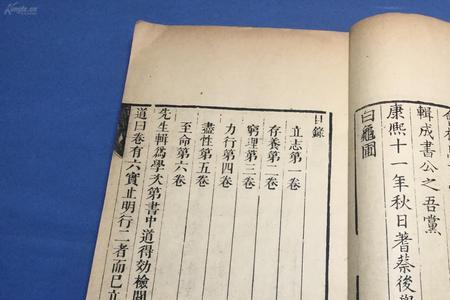 輯成書公之吾黨
康熙十一年秋日著蔡後
白龜圃
目錄
立志第一卷
存養第二卷
窮理第三卷
力行第四卷
盡性第五卷
至命第六卷
先生輯爲學次第書中道得效檢閱
道曰卷有六實止明行二者而已立